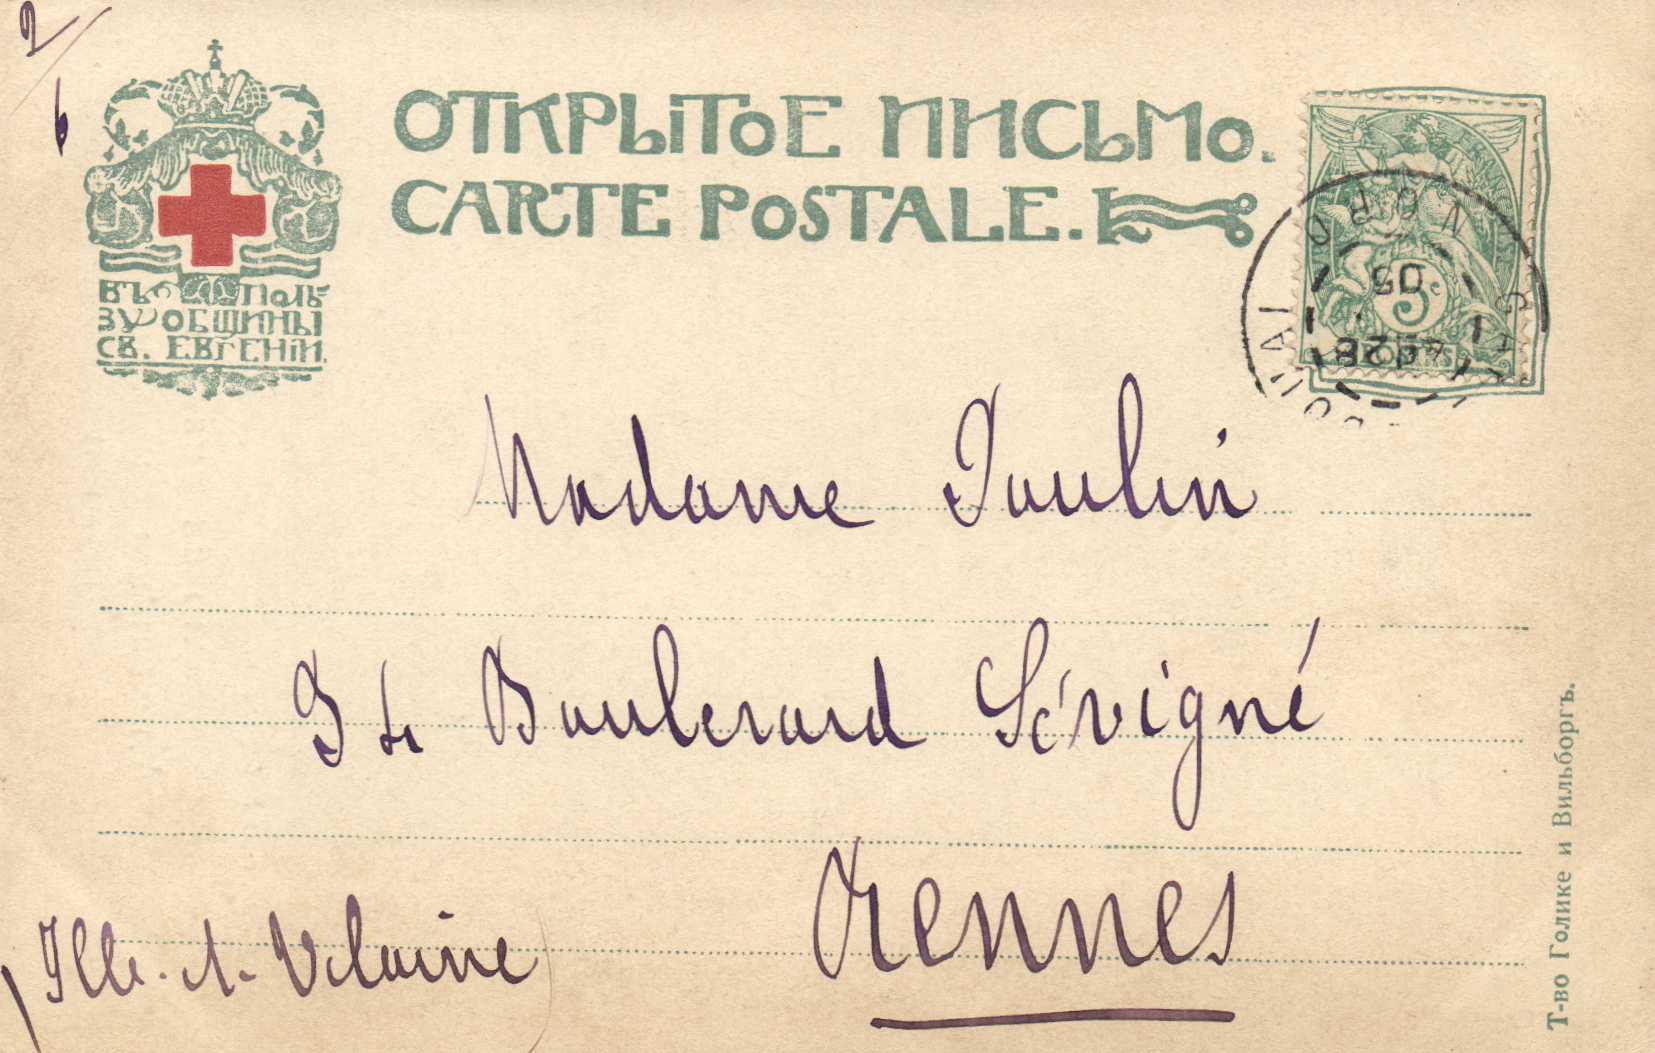 2/6
ОТКРЫТОЕ ПИСЬМО.
CARTE POSTALE.
ВЪ ПОЛЬ
ЗУ ОБЩИНЫ
СВ. ЕВГЕНІИ.
05
5c
28
Madame
34 Boulevard Sévigné
Rennes
(Ille-et-Vilaine)
Т-во Голике и Вильборгъ.